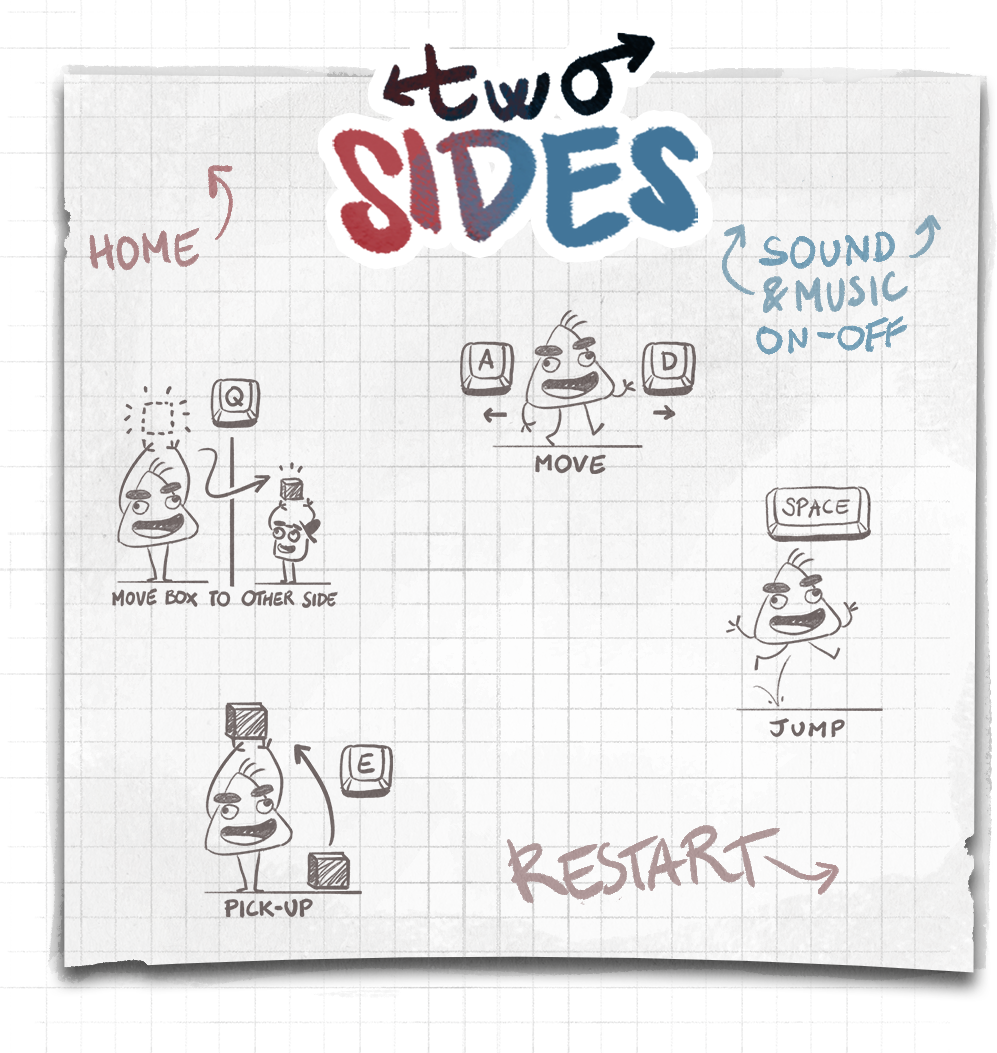 two
SIDES
HOME
SOUND
& MUSIC
ON-OFF
A
D
MOVE
Q
MOVE BOX TO OTHER SIDE
SPACE
JUMP
E
PICK-UP
RESTART